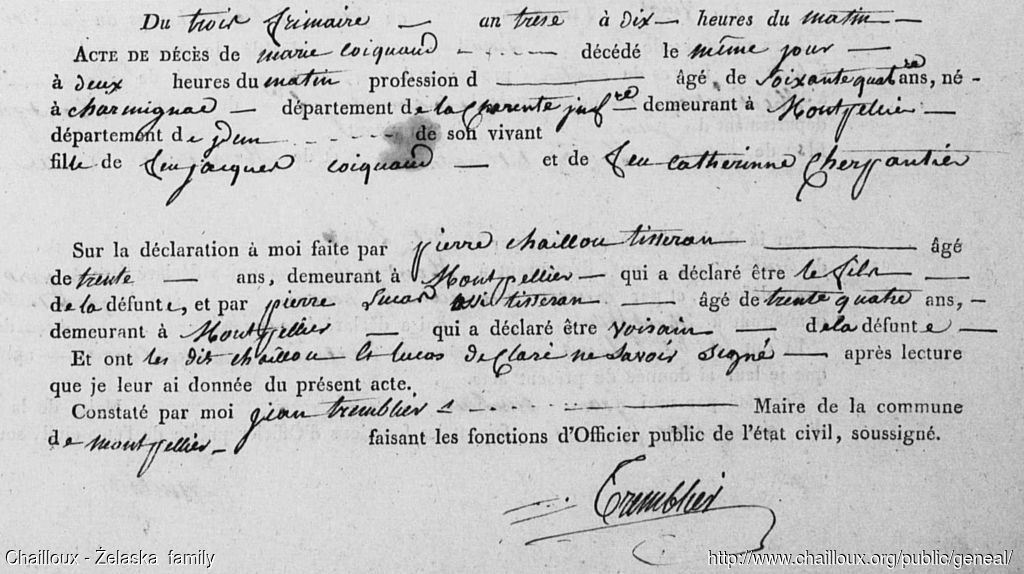 Du trois frimaire — an trese à dix — heures du matin —
ACTE DE DÉCÈS de marie coiquaud décédé le même jour —
à deux heures du matin profession d — âgé de soixante quatre ans, né -
à charmignac — département de la Charente jnf.re demeurant à Montpellier —
département de jdem de son vivant
fille de feu jacques coiquaud — et de feu catherinne Cherpantier
Sur la déclaration à moi faite par pierre chaillou tisseran — âgé
de trente — ans, demeurant à Montpellier — qui a déclaré être le fils —
de la défunte, et par pierre lucas tisseran — âgé de trente quatre ans, -
demeurant à Montpellier — qui a déclaré être voisain — de la défunte —
Et ont les dit chaillou Et lucas de Claré ne Savoir Signé — après lecture
que je leur ai donnée du présent acte.
Constaté par moi jean tremblier — Maire de la commune
de montpellier — faisant les fonctions d'Officier public de l'état civil, soussigné.
Tremblier
Chailloux - Żelaska family http://www.chailloux.org/public/geneal/